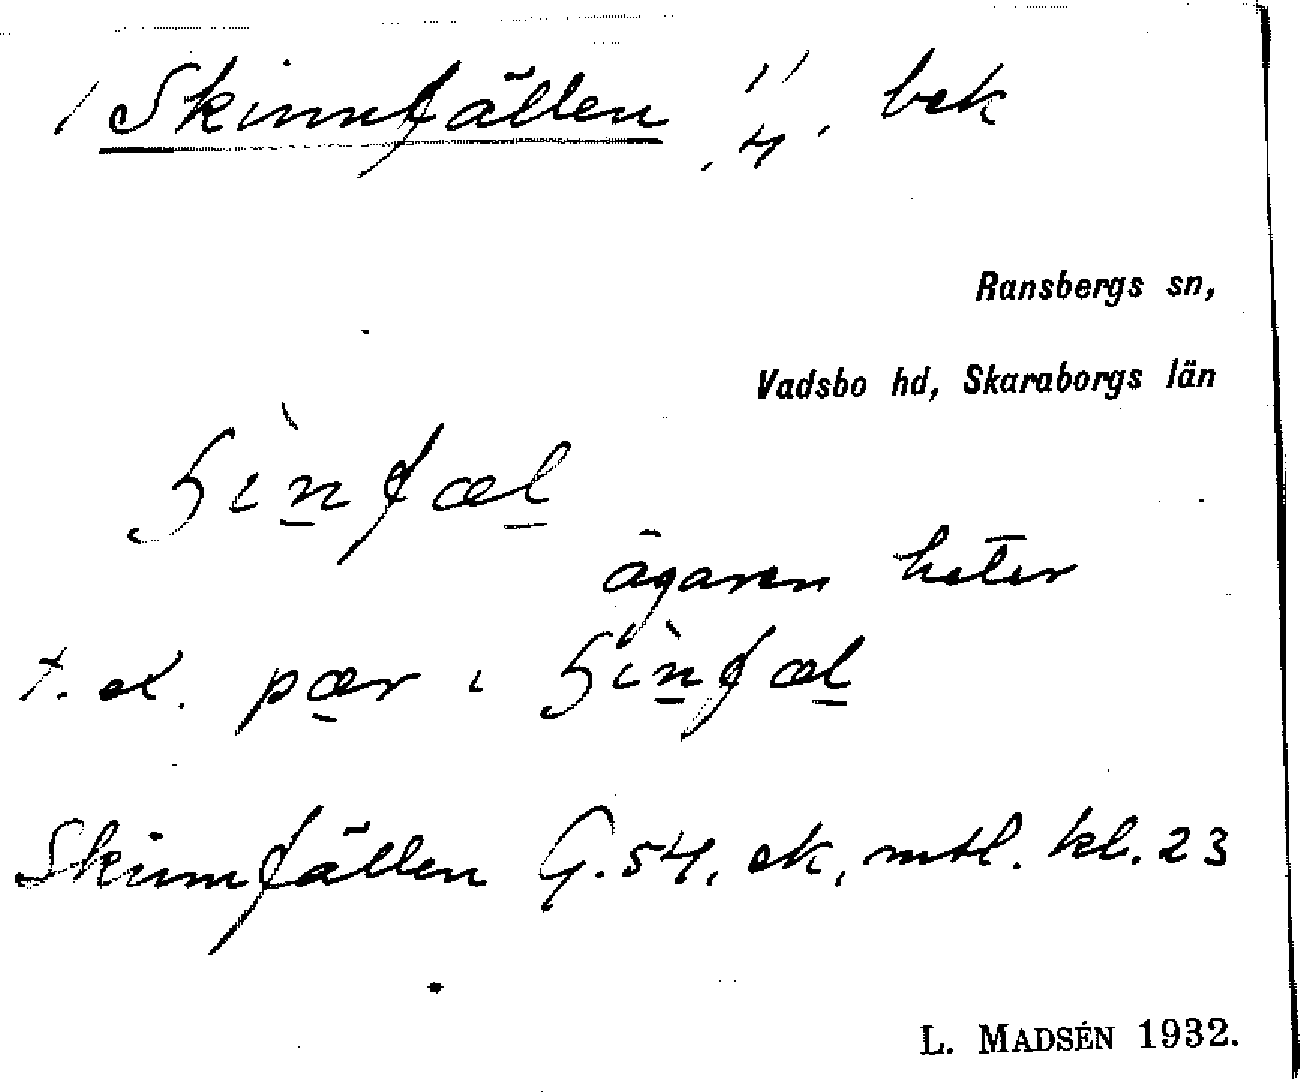 / Skinnfällen 1/4. bek
Ransbergs sn,
Vadsbo hd, Skaraborgs län
ʃìn̲fæl̲
ägaren heter
t. ex. pæ̲r i ʃìn̲fæl̲
Skinnfällen G. 54, ek, mtl. kl. 23
L. MADSÉN 1932.